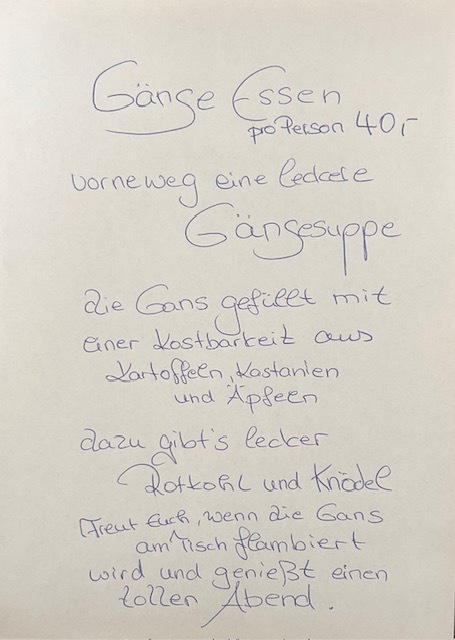 Gänse Essen
pro Person 40,-
vorneweg eine leckere
Gänsesuppe
die Gans gefüllt mit
einer Kostbarkeit aus
Kartoffeln, Kastanien
und Äpfeln
dazu gibt's lecker
Rotkohl und Knödel
Freut Euch, wenn die Gans
am Tisch flambiert
wird und genießt einen
tollen Abend.